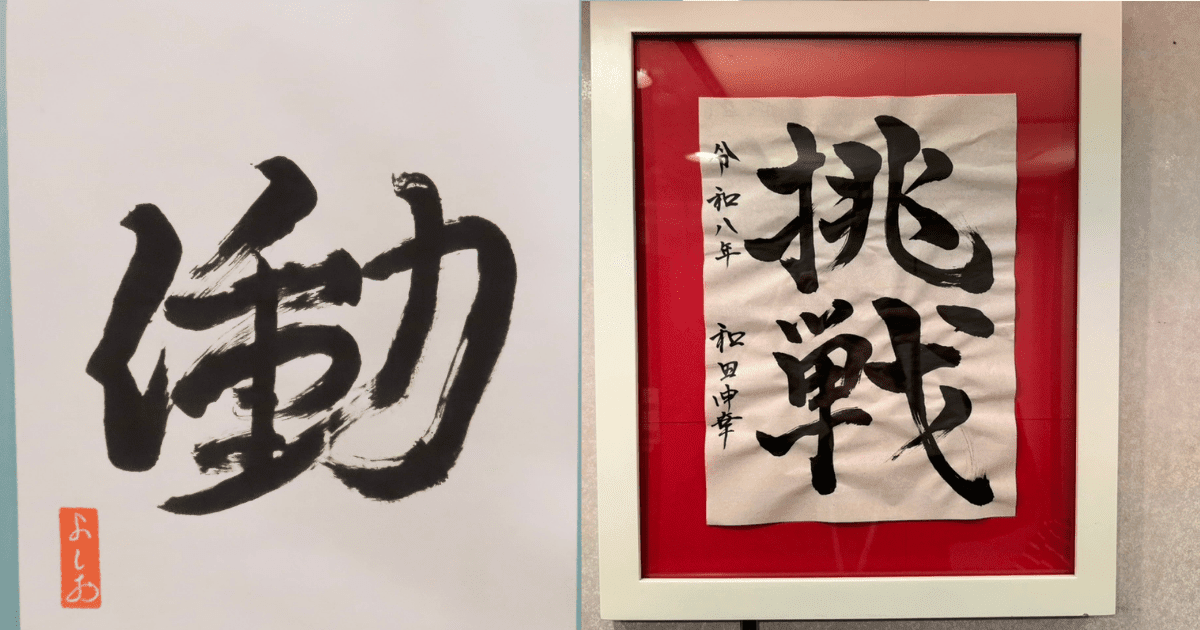 働
よしお
挑戦
令和八年
和田申幸